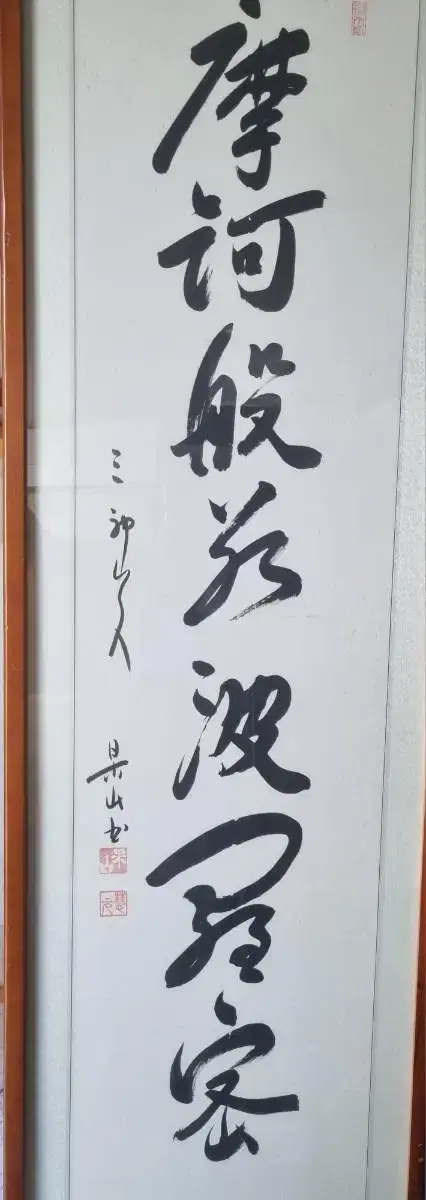 摩訶般若波羅密
三神山人 杲山書